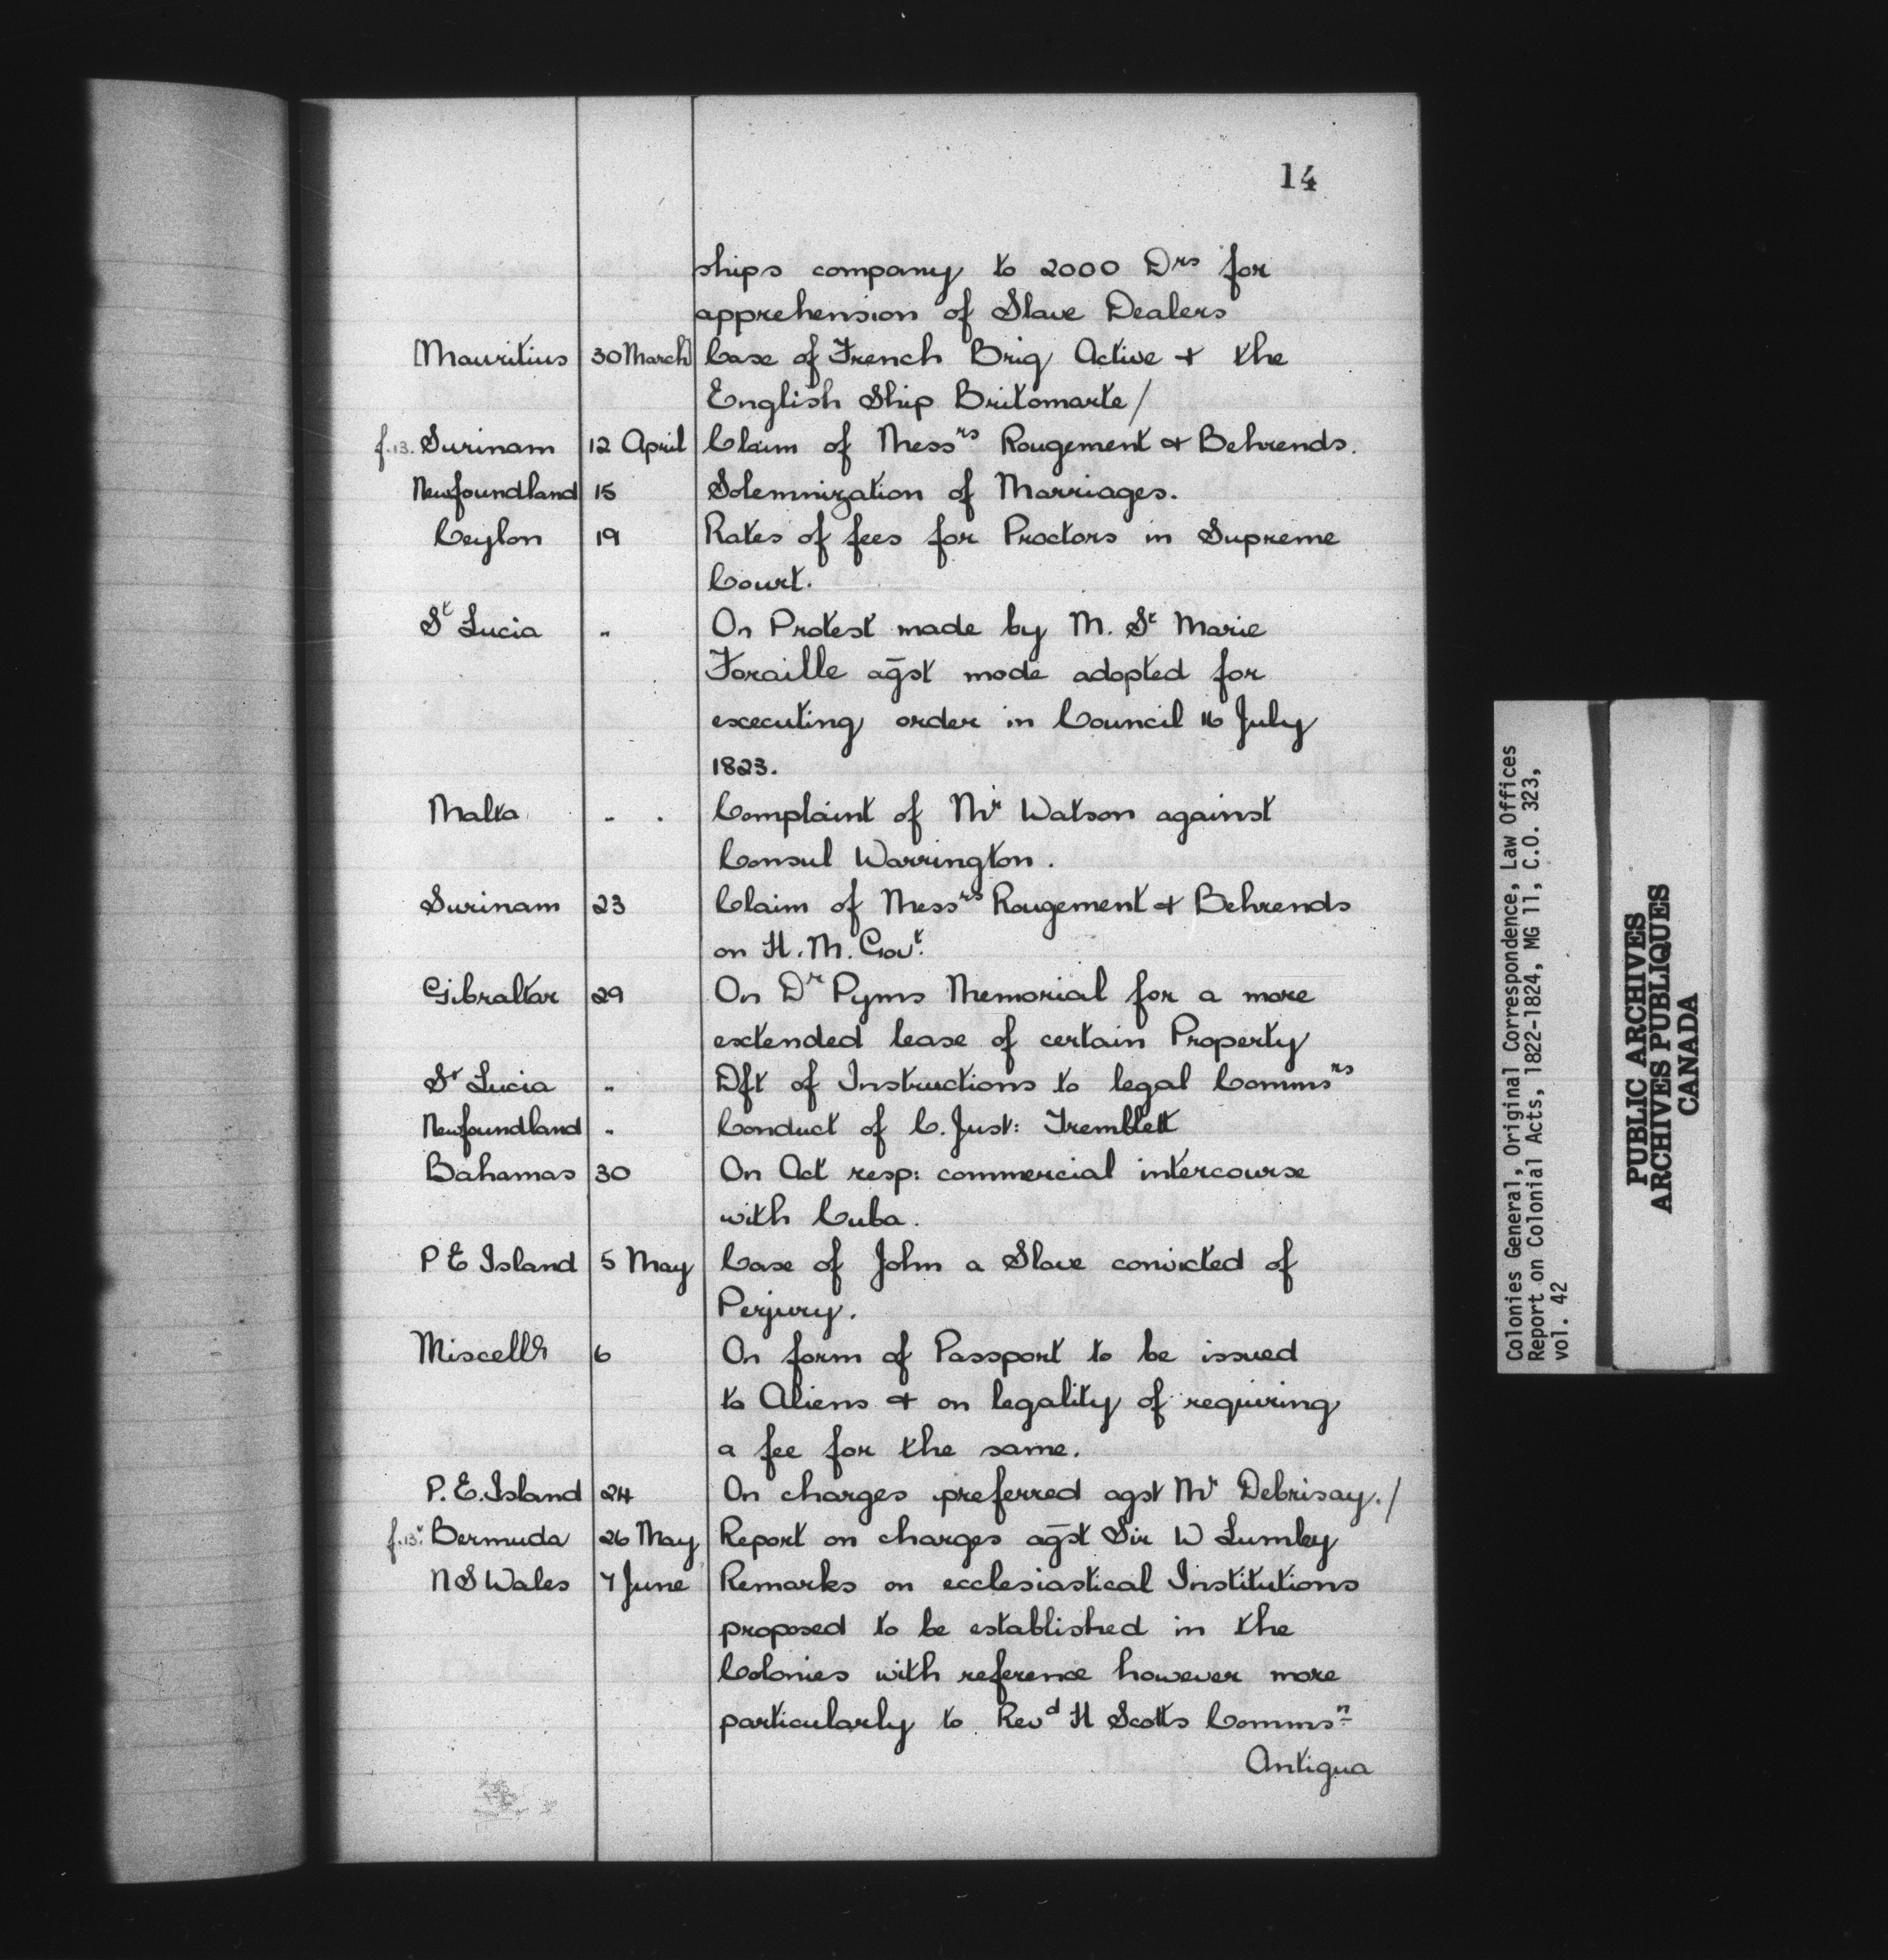 14
ships company to 2000 Drs for
apprehension of Slave Dealers
[Mauritius 30 March] Case of French Brig Active & the
English Ship Britomarte/
f.13. Surinam 12 April Claim of Messrs Rougement & Behrends.
Newfoundland 15 Solemnization of Marriages.
Ceylon 19 Rates of fees for Proctors in Supreme
Court.
St Lucia " On Protest made by M. St Marie
Foraille agst mode adopted for
executing order in Council 16 July
1823.
Malta " . Complaint of Mr Watson against
Consul Warrington.
Surinam 23 Claim of Messrs Rougement & Behrends
on H. M. Govt.
Gibraltar 29 On Dr Pyms Memorial for a more
extended lease of certain Property
St Lucia " Dft of Instructions to legal Commsrs
Newfoundland " Conduct of C. Just: Tremblett
Bahamas 30 On Act resp: commercial intercourse
with Cuba.
P E Island 5 May Case of John a Slave convicted of
Perjury.
Miscells 6 On form of Passport to be issued
to Aliens & on legality of requiring
a fee for the same.
P. E. Island 24 On charges preferred agst Mr Debrisay./
f.13v. Bermuda 26 May Report on charges agst Sir W Lumley
N S Wales 7 June Remarks on ecclesiastical Institutions
proposed to be established in the
Colonies with reference however more
particularly to Revd H Scotts Commsn
Antigua
Colonies General, Original Correspondence, Law Offices
Report on Colonial Acts, 1822-1824, MG 11, C.O. 323,
vol. 42
PUBLIC ARCHIVES
ARCHIVES PUBLIQUES
CANADA